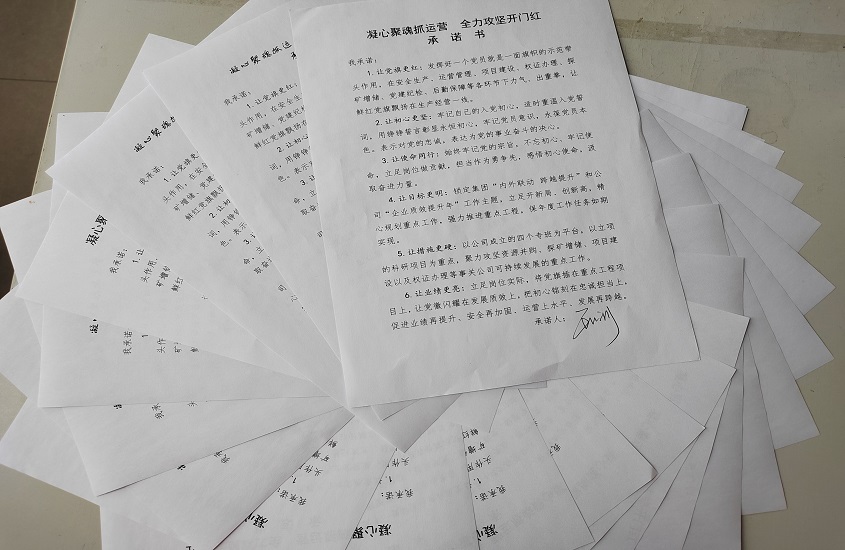 凝心聚魂抓运营 全力攻坚开门红
承 诺 书
我承诺：
1.让党旗更红：发挥好一个党员就是一面旗帜的示范带
头作用，在安全生产、运营管理、项目建设、权证办理、探
矿增储、党建纪检、后勤保障等各环节下力气、出重拳，让
鲜红党旗飘扬在生产经营一线。
2.让初心更坚：牢记自己的入党初心，适时重温入党誓
词，用铮铮誓言彰显永恒初心，牢记党员意识，永葆党员本
色，表示对党的忠诚，表达为党的事业奋斗的决心。
3.让使命同行：始终牢记党的宗旨，不忘初心、牢记使
命，立足岗位做贡献，担当作为勇争先，感悟初心使命，汲
取奋进力量。
4.让目标更明：锁定集团“内外联动 跨越提升”和公
司“企业质效提升年”工作主题，立足开新局、创新高，精
心规划重点工作，强力推进重点工程，保年度工作任务如期
实现。
5.让措施更硬：以公司成立的四个专班为平台，以立项
的科研项目为重点，聚力攻坚资源并购、探矿增储、项目建
设以及权证办理等事关公司可持续发展的重点工作。
6.让业绩更亮：立足岗位实际，将党旗插在重点工程项
目上，让党徽闪耀在发展质效上，把初心铭刻在忠诚担当上，
促进业绩再提升、安全再加固、运营上水平、发展再跨越。
承诺人：
凝心聚魂抓运
我承诺：
1.让党旗
头作用，在安全
矿增储、党建纪
鲜红党旗飘扬在
2.让初心
词，用铮铮
色，表示
3.让
命，立
取奋
凝心聚魂抓
我承诺：
1.让党旗
头作用，在安
矿增储、党
鲜红党旗
2.让初
词，用铮
色，表
凝心聚
我承诺：
1.让
头作用
矿增储
鲜红
我承诺
头作
矿
我承诺：
头作用
矿增
鲜
凝心
我承诺：
1.
头作用
矿增
鲜红
凝心聚
我承诺：
凝心